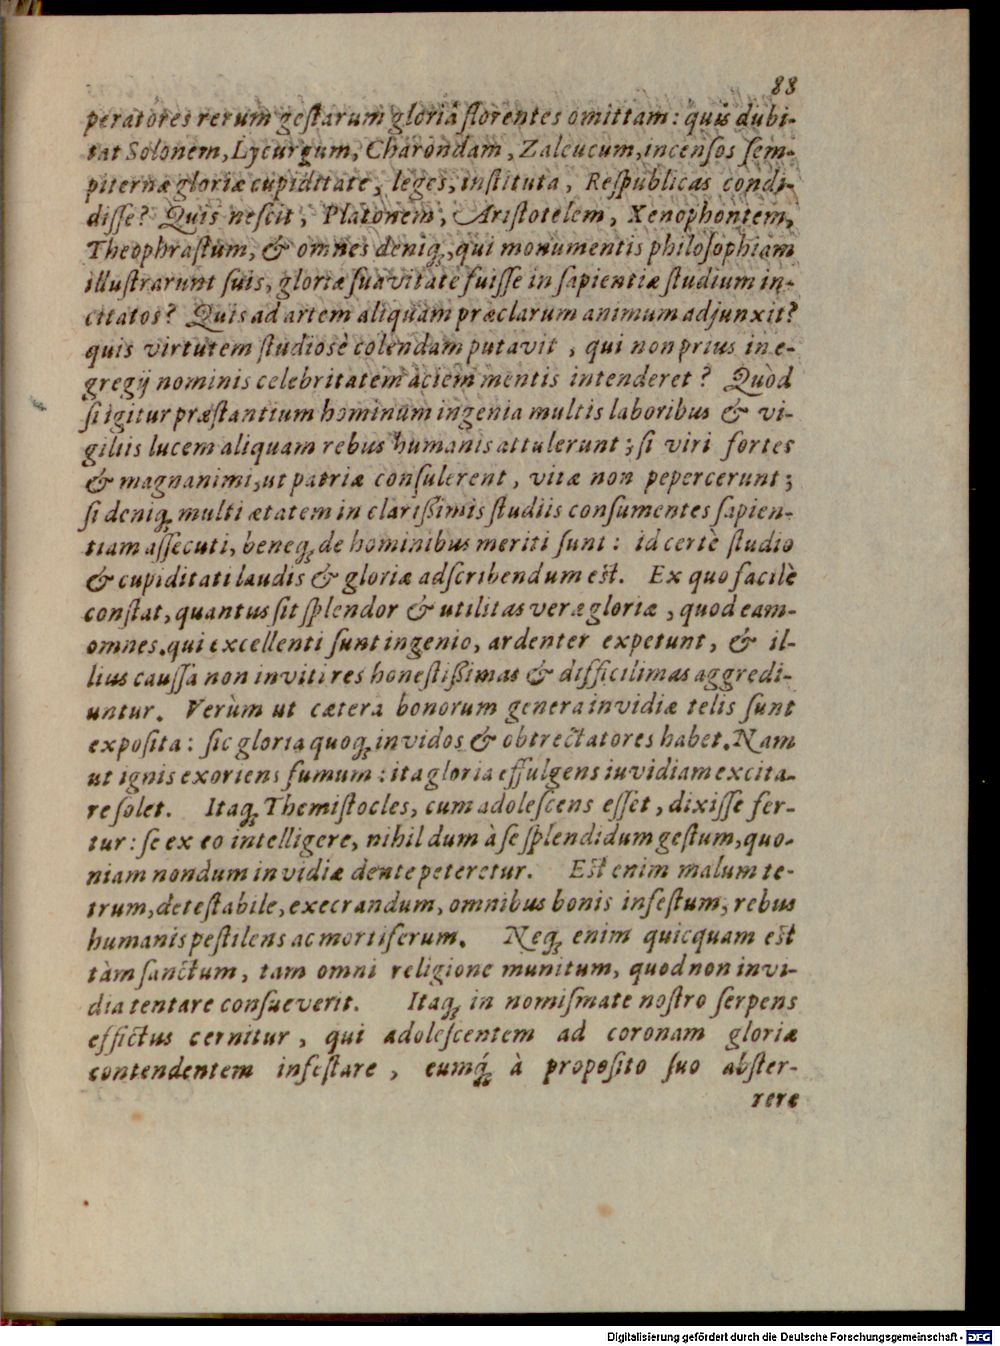 88
peratores rerum gestarum gloriâ florentes omittam: quis dubi-
tat Solonem, Lycurgum, Charondam, Zaleucum, incensos sem-
piternæ gloriæ cupiditate, leges, instituta, Respublicas condi-
disse? Quis nescit, Platonem, Aristotelem, Xenophontem,
Theophrastum, & omnes deniq;, qui monumentis philosophiam
illustrarunt suis, gloriæ suavitate fuisse in sapientiæ studium in-
citatos? Quis ad artem aliquam præclarum animum adjunxit?
quis virtutem studiosè colendam putavit, qui non prius in e-
gregij nominis celebritatem aciem mentis intenderet? Quòd
si igitur præstantium hominum ingenia multis laboribus & vi-
giliis lucem aliquam rebus humanis attulerunt; si viri fortes
& magnanimi, ut patriæ consulerent, vitæ non pepercerunt;
si deniq; multi ætatem in clarißimis studiis consumentes sapien-
tiam assecuti, beneq; de hominibus meriti sunt: id certè studio
& cupiditati laudis & gloriæ adscribendum est. Ex quo facilè
constat, quantus sit splendor & utilitas veræ gloriæ, quod eam-
omnes. qui excellenti sunt ingenio, ardenter expetunt, & il-
lius caussâ non inviti res honestißimas & difficilimas aggredi-
untur. Verùm ut cætera bonorum genera invidiæ telis sunt
exposita: sic gloria quoq; invidos & obtrectatores habet. Nam
ut ignis exoriens fumum: ita gloria effulgens iuvidiam excita-
re solet. Itaq; Themistocles, cum adolescens esset, dixisse fer-
tur: se ex eo intelligere, nihil dum à se splendidum gestum, quo-
niam nondum invidiæ dente peteretur. Est enim malum te-
trum, detestabile, execrandum, omnibus bonis infestum, rebus
humanis pestilens ac mortiferum. Neq; enim quicquam est
tàm sanctum, tam omni religione munitum, quod non invi-
dia tentare consueverit. Itaq; in nomismate nostro serpens
effictus cernitur, qui adolescentem ad coronam gloriæ
contendentem infestare, eumq́; à proposito suo abster-
rere
Digitalisierung gefördert durch die Deutsche Forschungsgemeinschaft - DFG